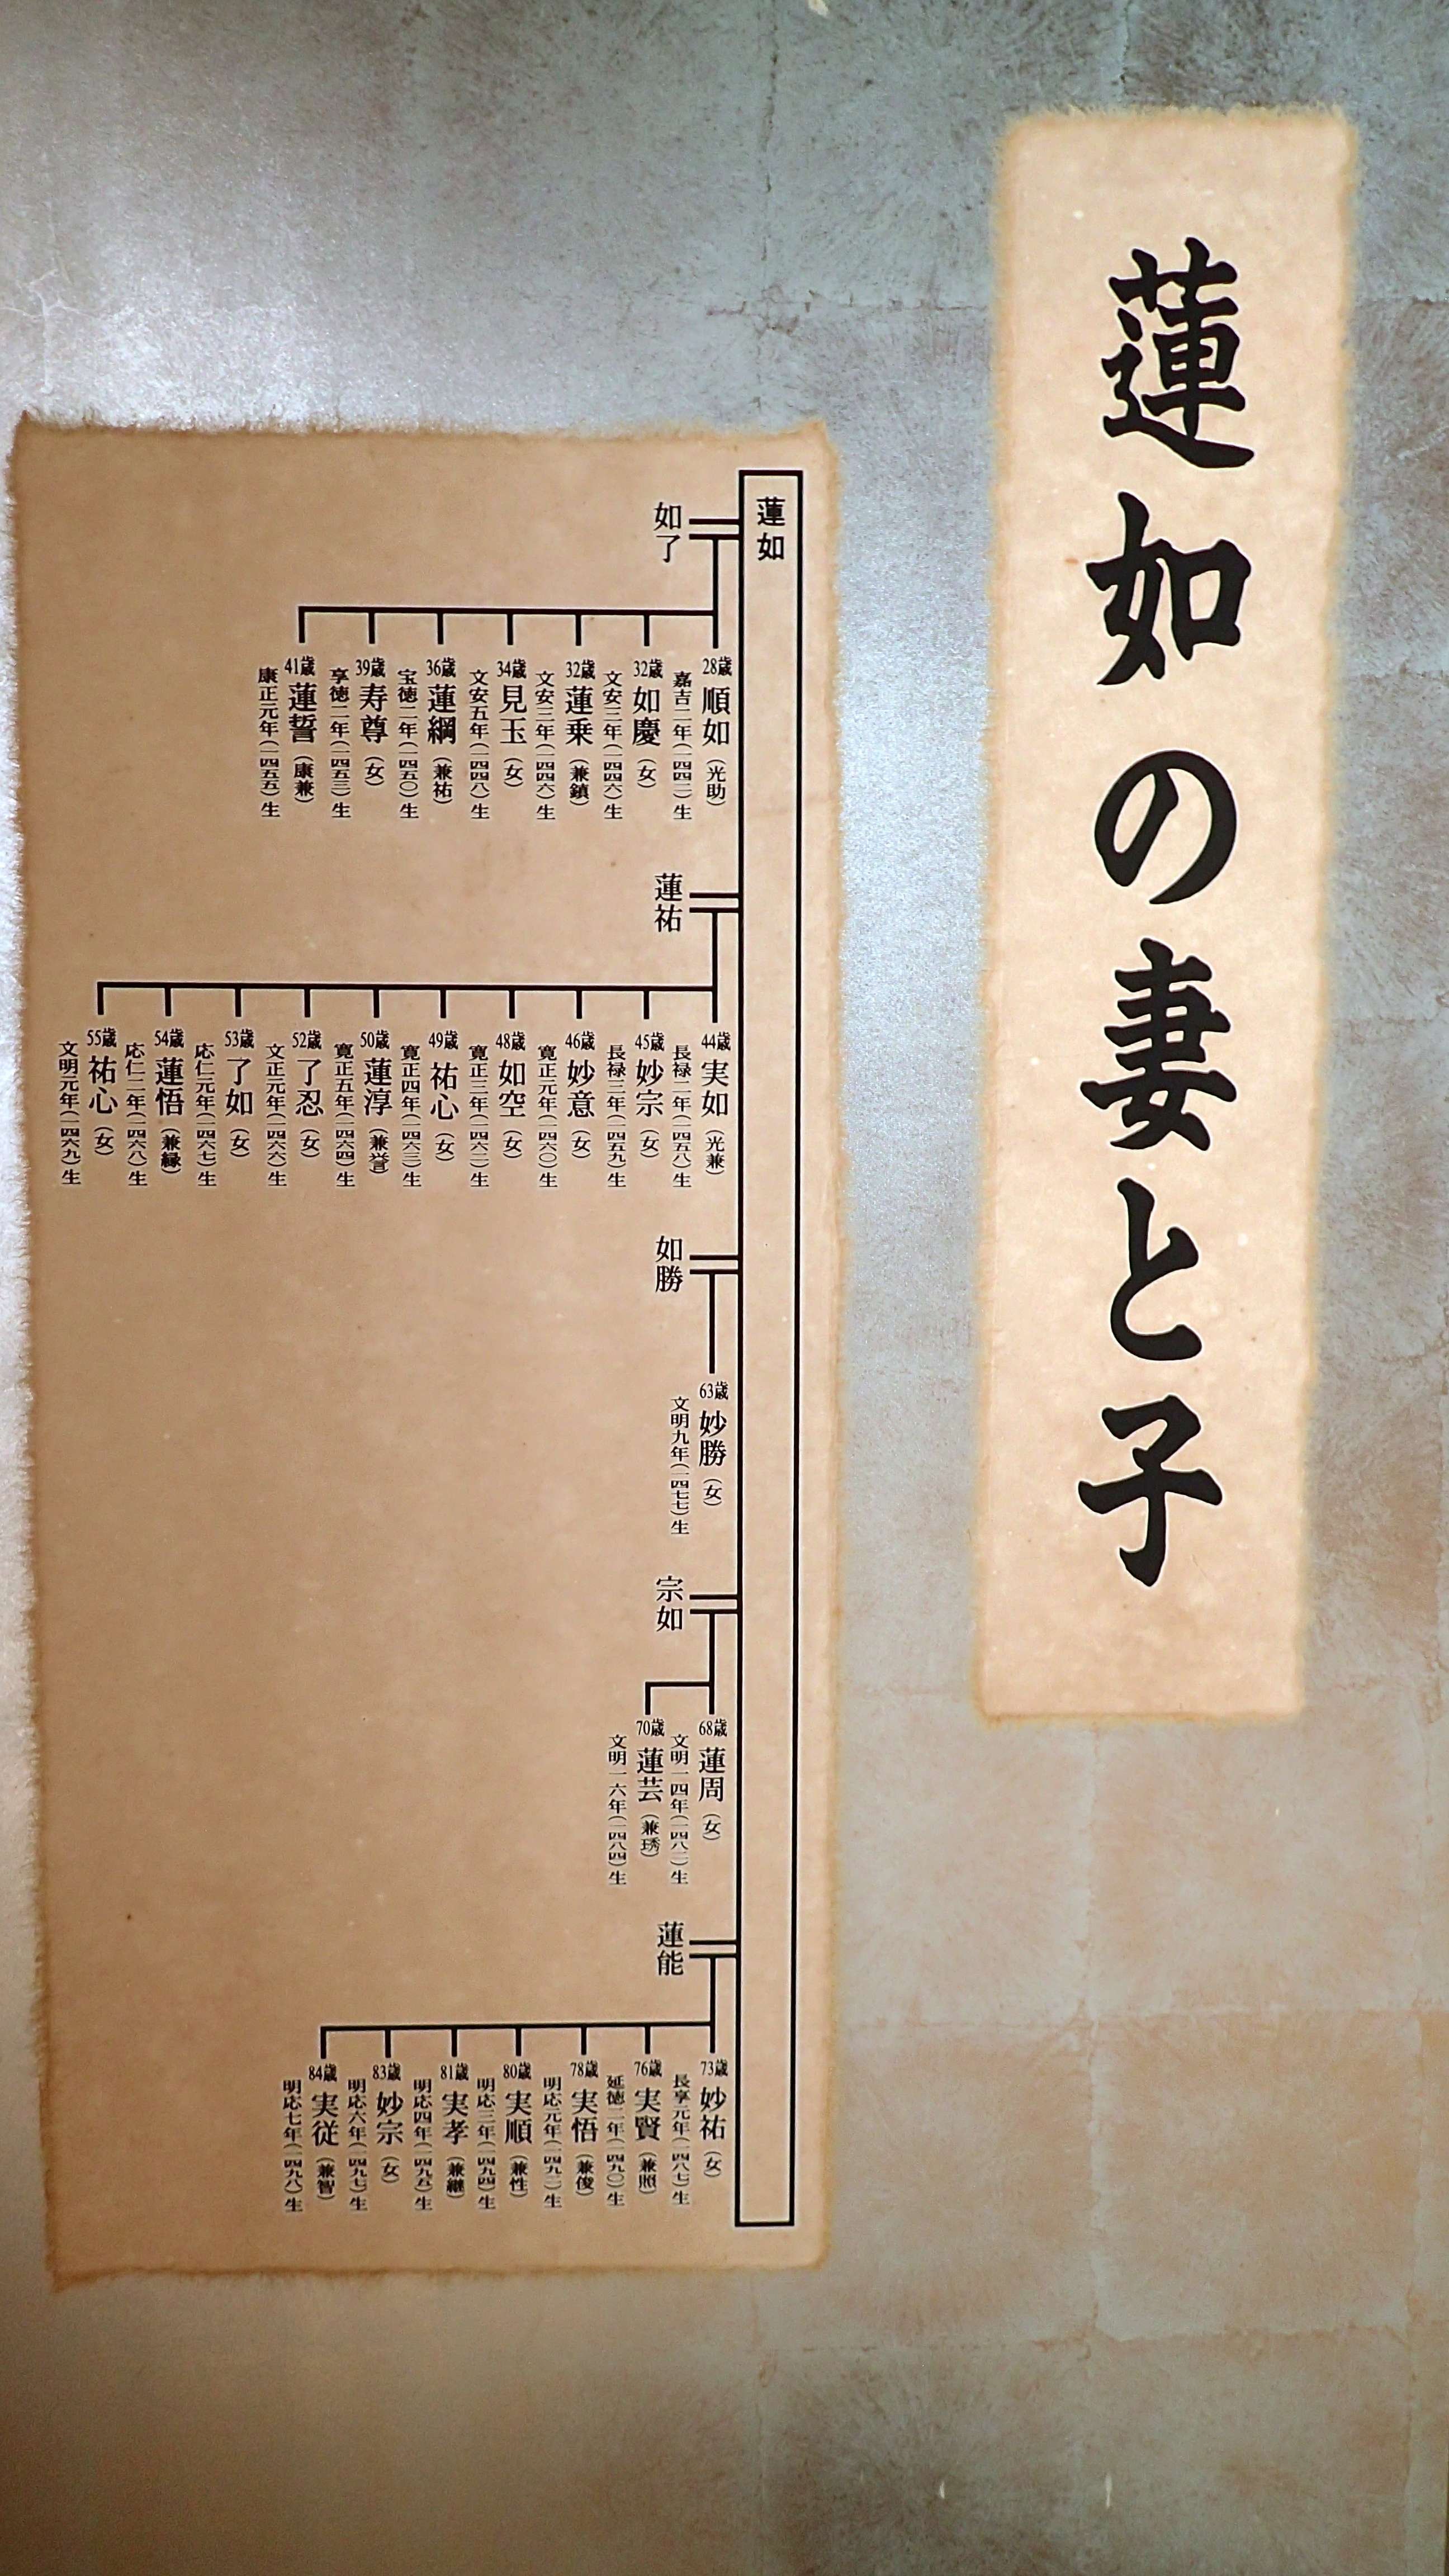 蓮如の妻と子
蓮如
如了
28歳 順如（光助）
嘉吉二年（一四四二）生
32歳 如慶（女）
文安三年（一四四六）生
32歳 蓮乗（兼鎮）
文安三年（一四四六）生
34歳 見玉（女）
文安五年（一四四八）生
36歳 蓮綱（兼祐）
宝徳二年（一四五〇）生
39歳 寿尊（女）
享徳二年（一四五三）生
41歳 蓮誓（康兼）
康正元年（一四五五）生
蓮祐
44歳 実如（光兼）
長禄二年（一四五八）生
45歳 妙宗（女）
長禄三年（一四五九）生
46歳 妙意（女）
寛正元年（一四六〇）生
48歳 如空（女）
寛正三年（一四六二）生
49歳 祐心（女）
寛正四年（一四六三）生
50歳 蓮淳（兼誉）
寛正五年（一四六四）生
52歳 了忍（女）
文正元年（一四六六）生
53歳 了如（女）
応仁元年（一四六七）生
54歳 蓮悟（兼縁）
応仁二年（一四六八）生
55歳 祐心（女）
文明元年（一四六九）生
如勝
63歳 妙勝（女）
文明九年（一四七七）生
宗如
68歳 蓮周（女）
文明一四年（一四八二）生
70歳 蓮芸（兼琇）
文明一六年（一四八四）生
蓮能
73歳 妙祐（女）
長享元年（一四八七）生
76歳 実賢（兼照）
延徳二年（一四九〇）生
78歳 実悟（兼俊）
明応元年（一四九二）生
80歳 実順（兼性）
明応三年（一四九四）生
81歳 実孝（兼継）
明応四年（一四九五）生
83歳 妙宗（女）
明応六年（一四九七）生
84歳 実従（兼智）
明応七年（一四九八）生